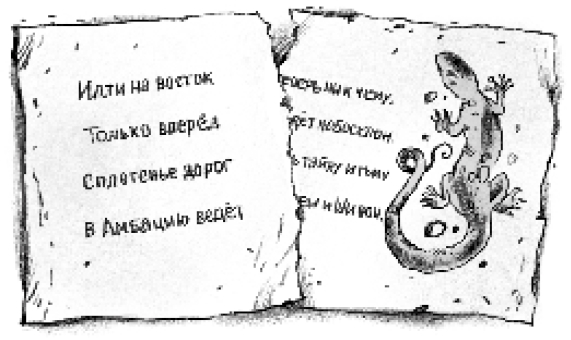 Идти на восток
Только вперёд
Сплетенье дорог
в Амбацию ведёт
ни к чему,
небосклон,
и тьму
и Шивон,